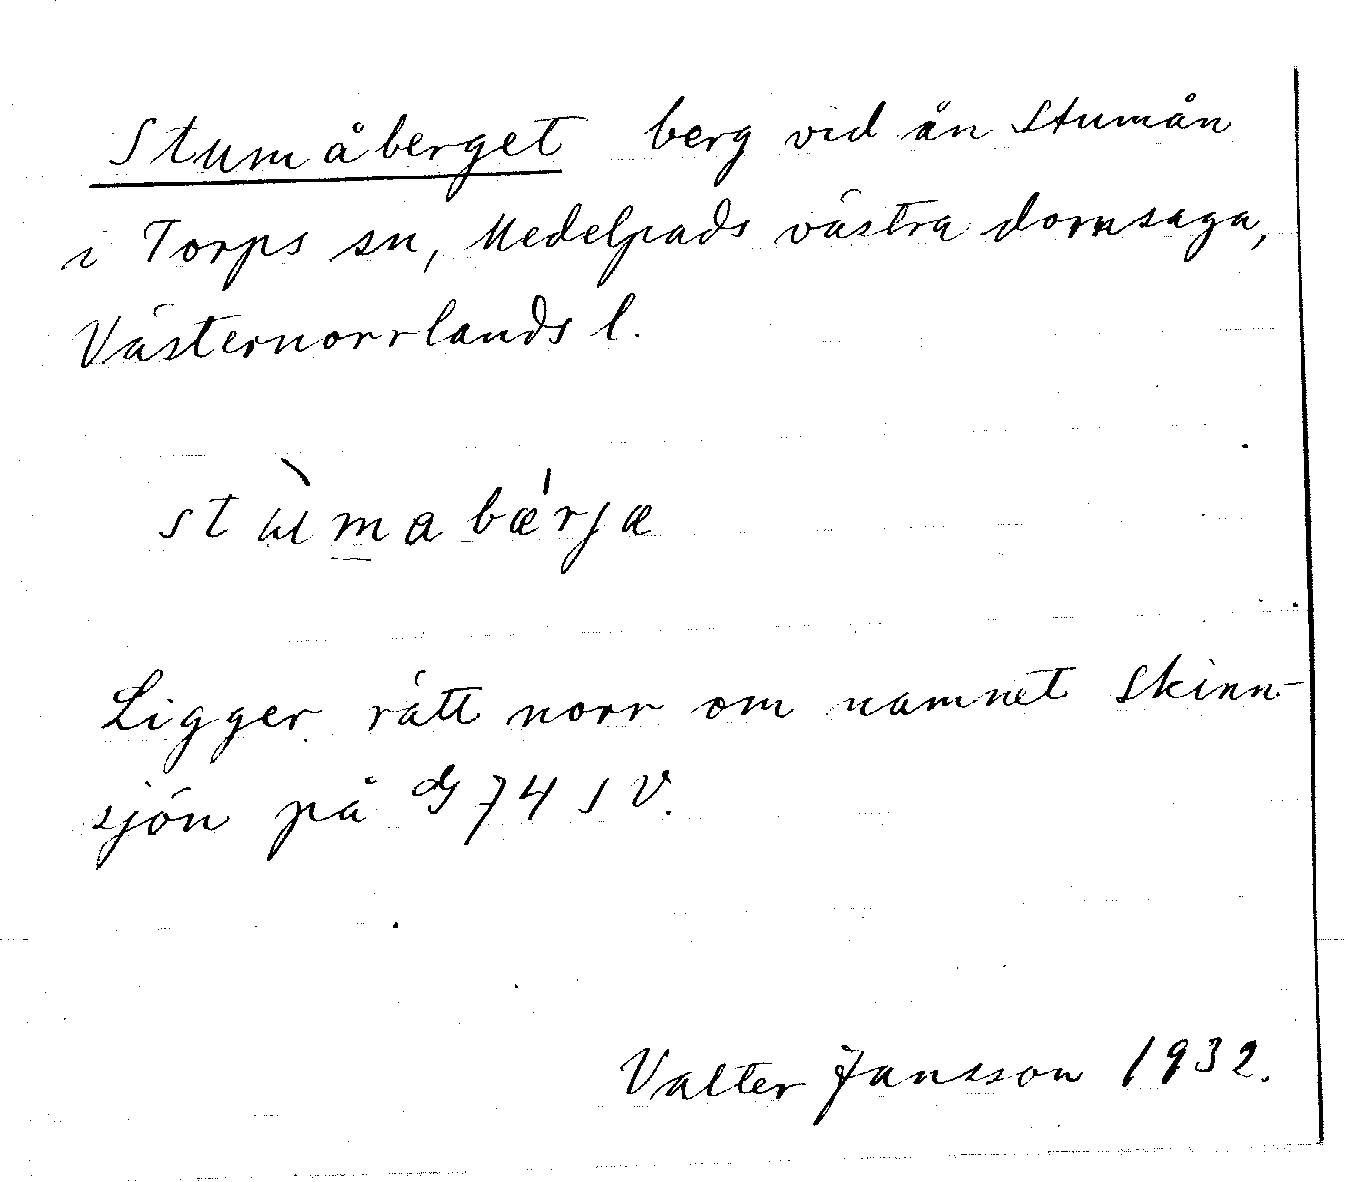 Stumåberget berg vid ån Stumån
i Torps sn, Medelpads västra domsaga,
Västernorrlands l.
stùmabǽrjæ
Ligger rätt norr om namnet Skinn-
sjön på G 74 SV.
Valter Jansson 1932.